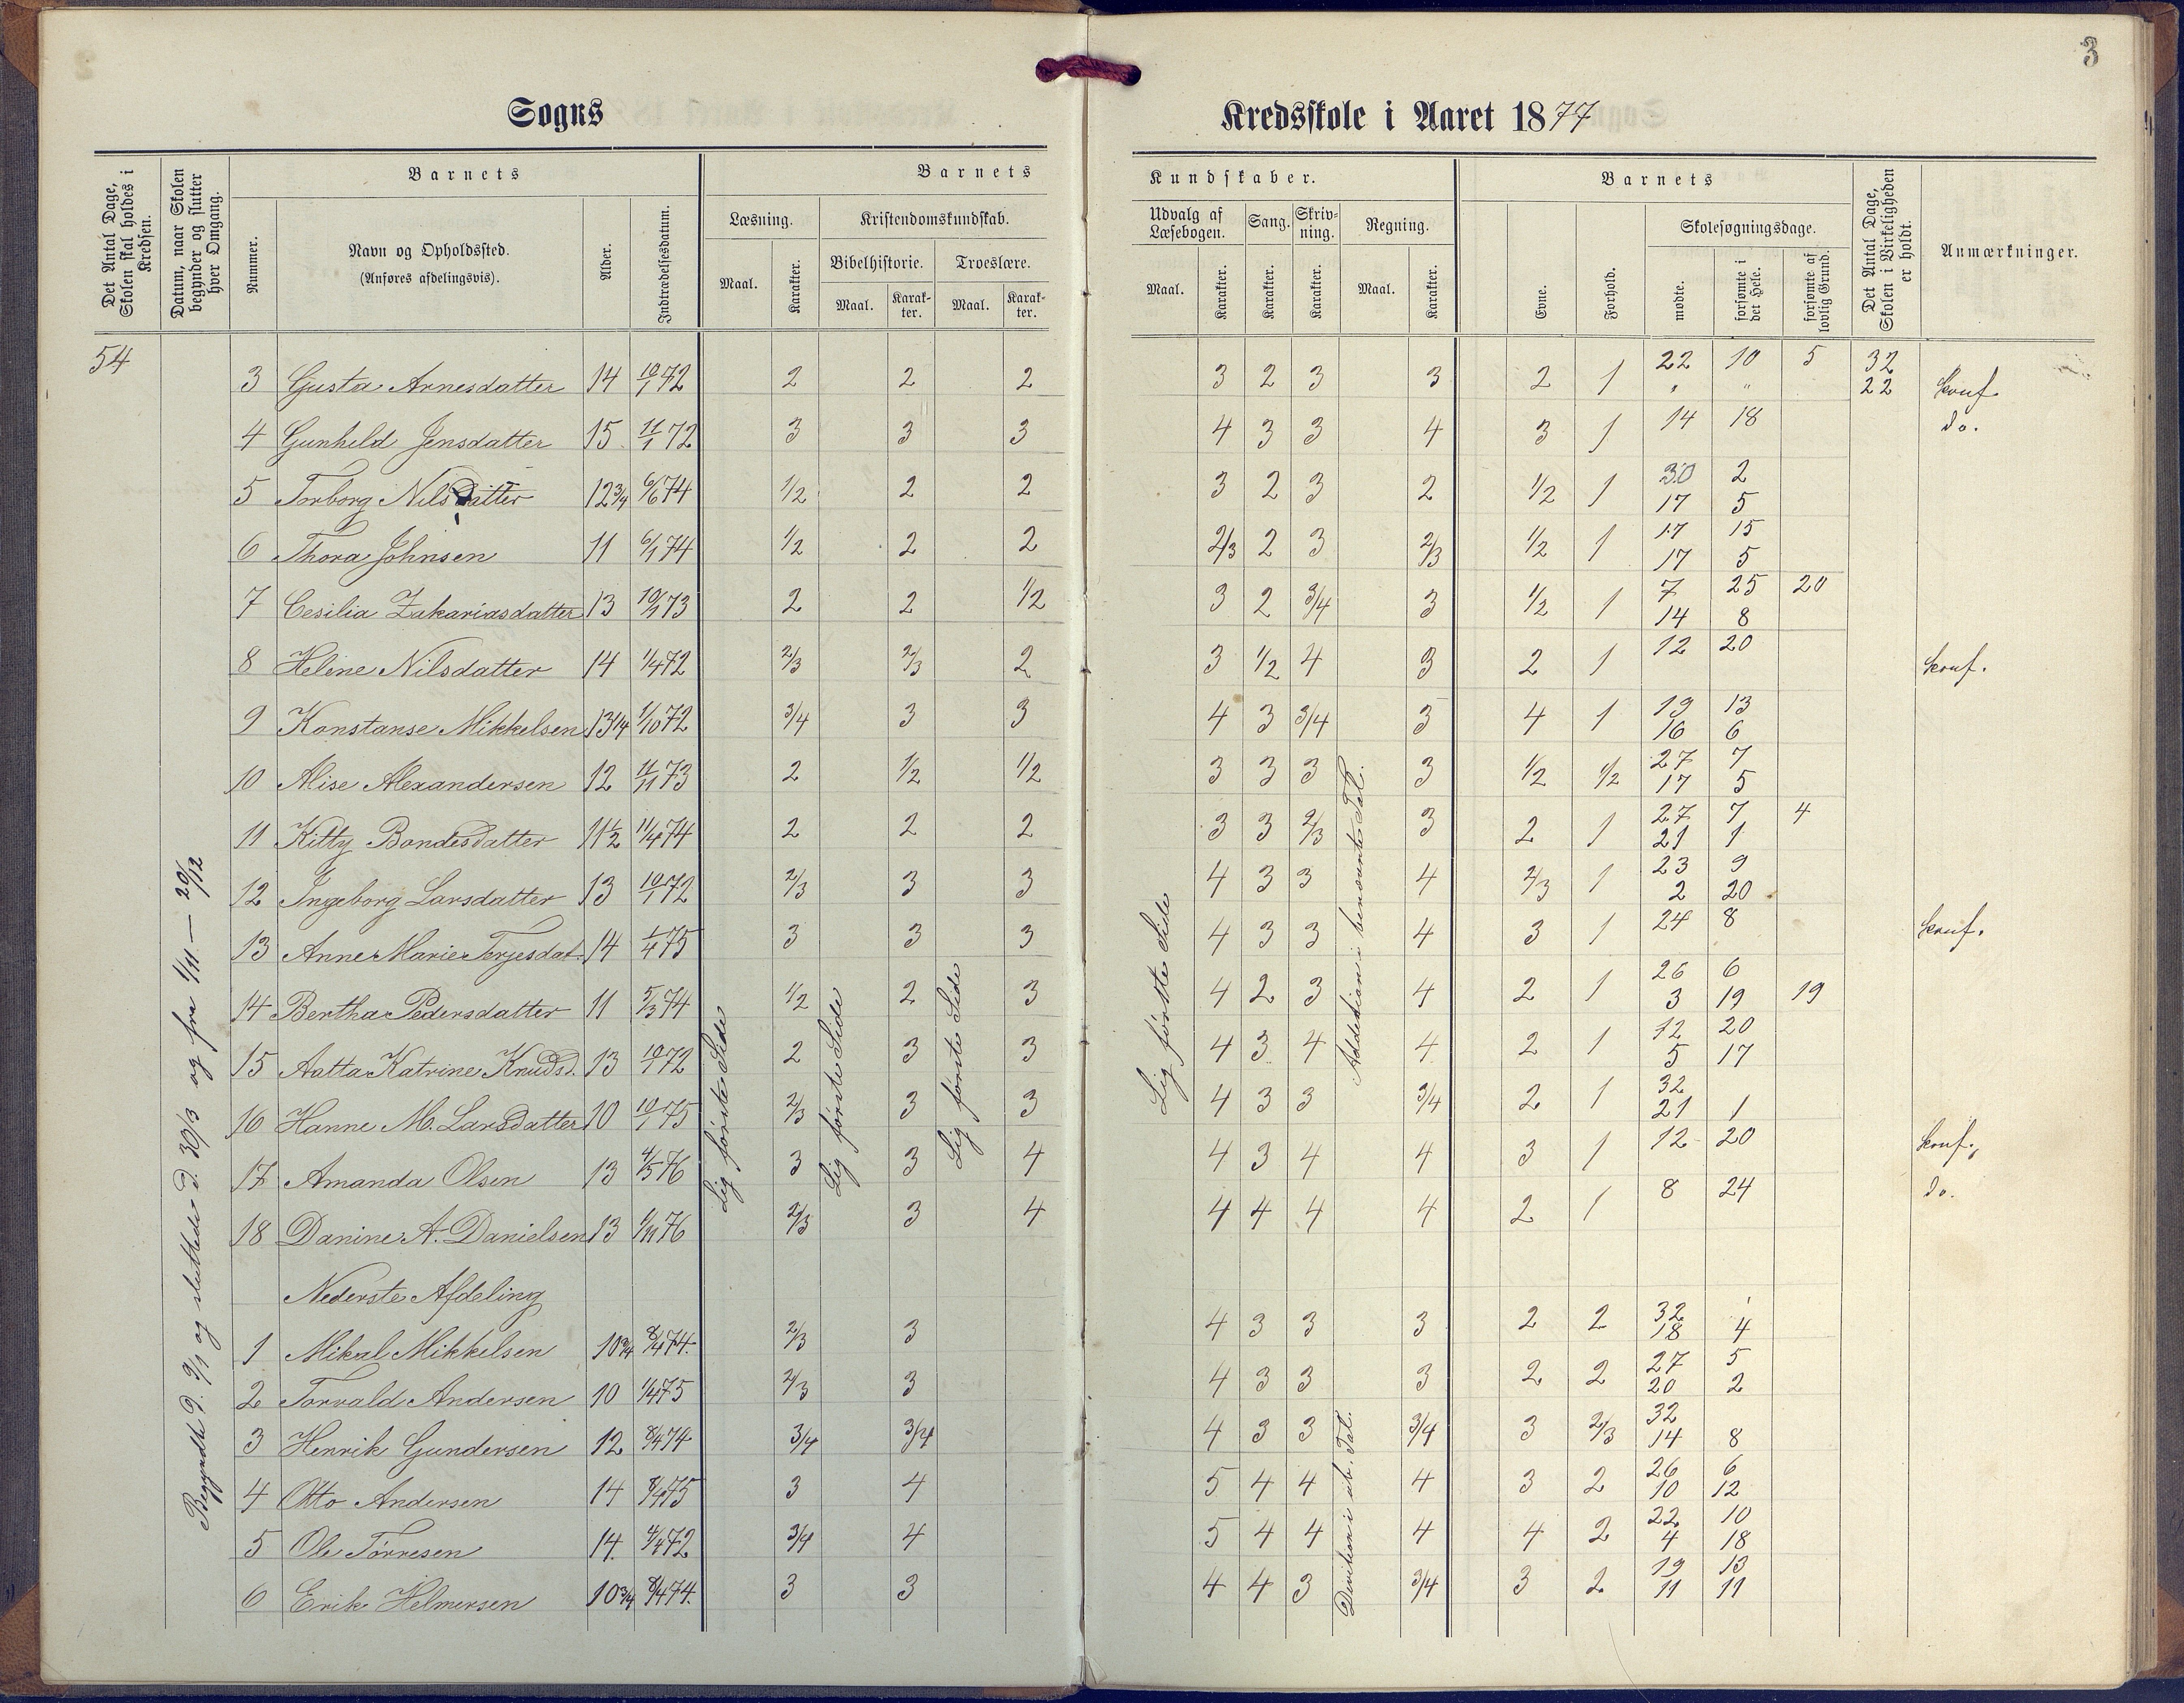 3
Sogns
Kredsskole i Aaret 1877
Det Antal Dage, Skolen skal holdes i Kredsen.
Datum, naar Skolen begynder og slutter hver Omgang.
Barnets
Nummer.
Navn og Opholdssted.
(Anføres afdelingsvis).
Alder.
Indtrædelsesdatum.
Barnets
Læsning.
Maal.
Karakter.
Kristendomskundskab.
Bibelhistorie.
Maal.
Karak-ter.
Troeslære.
Maal.
Karak-ter.
Kundskaber.
Udvalg af Læsebogen.
Maal.
Karakter.
Sang.
Karakter.
Skriv-ning.
Karakter.
Regning.
Maal.
Karakter.
Barnets
Evne.
Forhold.
Skolesøgningsdage.
mødte.
forsømte i det Hele.
forsømte af lovlig Grund.
Det Antal Dage, Skolen i Virkeligheden er holdt.
Anmærkninger.
54
Begyndte d. 9/1 og sluttede d. 30/3 og fra 1/11 — 20/12
Lig første Side
Lig første Side
Lig første Side
Lig første Side
Addetion i benævnte Tal.
Divition i ub. Tal.
3 Gusta Arnesdatter 14 10/1 72 2 2 2 3 2 3 3 2 1 22 10 5 32
" " 22 konf.
4 Gunhild Jensdatter 15 11/1 72 3 3 3 4 3 3 4 3 1 14 18 do.
5 Torborg Nilsdatter 12 3/4 6/6 74 1/2 2 2 3 2 3 2 1/2 1 30 2
17 5
6 Thora Johnsen 11 6/1 74 1/2 2 2 2/3 2 3 2/3 1/2 1 17 15
17 5
7 Cesilia Zakariasdatter 13 10/1 73 2 2 1/2 3 2 3/4 3 1/2 1 7 25 20
14 8
8 Heline Nilsdatter 14 1/4 72 2/3 2/3 2 3 1/2 4 3 2 1 12 20 konf.
9 Konstanse Mikkelsen 13 1/4 1/10 72 3/4 3 3 4 3 3/4 3 4 1 19 13
16 6
10 Alise Alexandersen 12 11/11 73 2 1/2 1/2 3 3 3 3 1/2 1/2 27 7
17 5
11 Kitty Bondesdatter 11 1/2 11/4 74 2 2 2 3 3 2/3 3 2 1 27 7 4
21 1
12 Ingeborg Larsdatter 13 10/1 72 2/3 3 3 4 3 3 4 2/3 1 23 9
2 20
13 Anne Marie Terjesdat. 14 1/4 75 3 3 3 4 3 3 4 3 1 24 8 konf.
14 Bertha Pedersdatter 11 5/3 74 1/2 2 3 4 2 3 4 2 1 26 6
3 19 19
15 Aatta Katrine Knudsd. 13 10/1 72 2 3 3 4 3 4 4 2 1 12 20
5 17
16 Hanne M. Larsdatter 10 10/1 75 2/3 3 3 4 3 3 3/4 2 1 32
21 1
17 Amanda Olsen 13 4/5 76 3 3 4 4 3 4 4 3 1 12 20 konf.
18 Danine A. Danielsen 13 1/11 76 2/3 3 4 4 4 4 4 2 1 8 24 do.
Nederste Afdeling
1 Mikal Mikkelsen 10 3/4 8/4 74. 2/3 3 4 3 3 3 2 2 32
18 4
2 Torvald Andersen 10 1/4 75 2/3 3 4 3 3 3 2 2 27 5
20 2
3 Henrik Gundersen 12 8/4 74 3/4 3/4 4 3 3 3/4 3 2/3 32
14 8
4 Otto Andersen 14 8/4 75 3 4 5 4 4 4 3 2 26 6
10 12
5 Ole Tørresen 14. 4/4 72 3/4 4 5 4 4 4 4 2 22 10
4 18
6 Erik Helmersen 10 3/4 8/4 74. 3 3 4 4 3 3/4 3 2 19 13
11 11